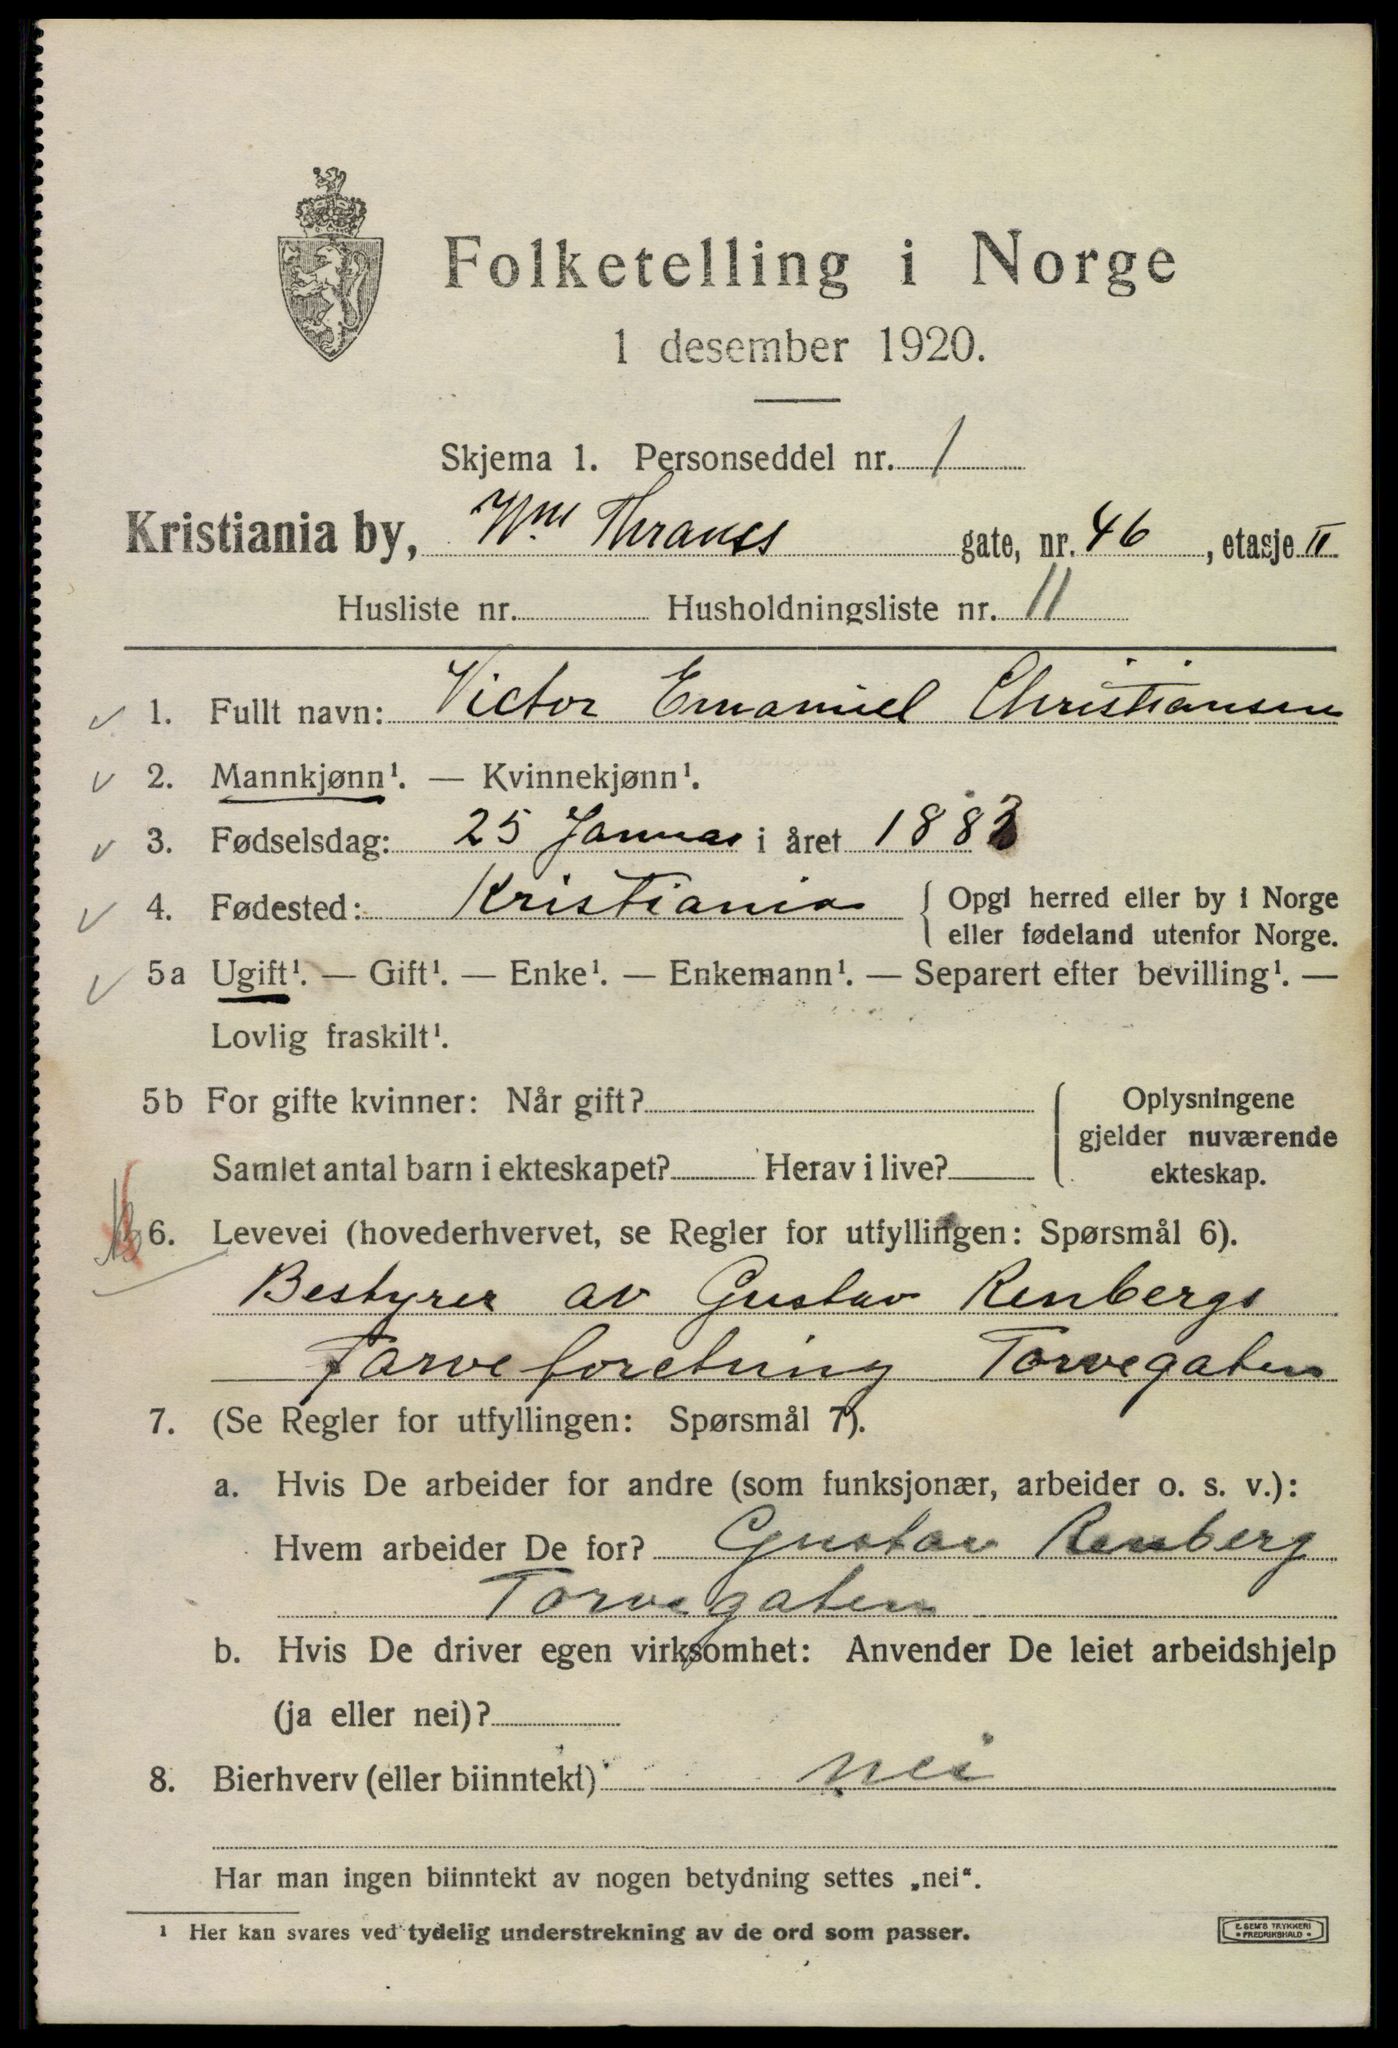 Folketelling i Norge
1 desember 1920.
Skjema 1. Personseddel nr. 1
Kristiania by, Wm Thranes gate, nr. 46, etasje II
Husliste nr. Husholdningsliste nr. 11
1. Fullt navn: Victor Emanuel Christiansen
2. Mannkjønn¹. — Kvinnekjønn¹.
3. Fødselsdag: 25 Januar i året 1883
4. Fødested: Kristiania { Opgi herred eller by i Norge
eller fødeland utenfor Norge.
5a Ugift¹. — Gift¹. — Enke¹. — Enkemann¹. — Separert efter bevilling¹. —
Lovlig fraskilt¹.
5b For gifte kvinner: Når gift? { Oplysningene
gjelder nuværende
Samlet antal barn i ekteskapet? Herav i live? ekteskap.
6. Levevei (hovederhvervet, se Regler for utfyllingen: Spørsmål 6).
Bestyrer av Gustav Renbergs
Farveforetning Torvegaten
7. (Se Regler for utfyllingen: Spørsmål 7).
a. Hvis De arbeider for andre (som funksjonær, arbeider o. s. v.):
Hvem arbeider De for? Gustav Renberg
Torvegaten
b. Hvis De driver egen virksomhet: Anvender De leiet arbeidshjelp
(ja eller nei)?
8. Bierhverv (eller biinntekt) nei
Har man ingen biinntekt av nogen betydning settes „nei“.
¹ Her kan svares ved tydelig understrekning av de ord som passer.
E. SEM'S TRYKKERI
• FREDRIKSHALD •